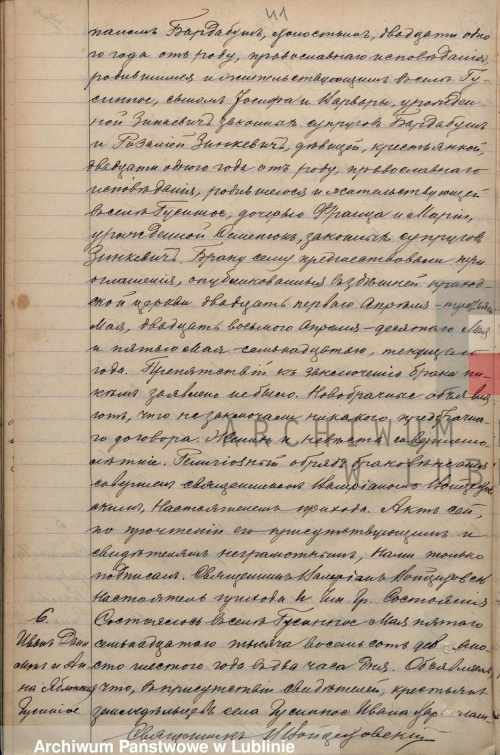 41
паномъ Бардабушъ, холостымъ, двадцати одно
го года отъ роду, православнаго исповѣданія,
родившимся и жительствующимъ въ селѣ Гу
синное, сыномъ Іосифа и Варвары, урожден
ной Зинкевичъ, законныхъ супруговъ Бардабушъ
и Розаліей Зинкевичъ, дѣвицей, крестьянкой,
двадцати одного года отъ роду, православнаго
исповѣданія, родившеюся и жительствующей
въ селѣ Гусинное, дочерью Франца и Маріи,
урожденной Семенюкъ, законныхъ супруговъ
Зинкевичъ. Браку сему предшествовали три
оглашенія, опубликованныя въ здѣшней приход
ской церкви двадцать перваго Апрѣля - третьяго
Мая, двадцать восьмого Апрѣля - десятаго Мая
и пятаго Мая - семнадцатаго, текущаго
года. Препятствій къ заключенію брака ни
кѣмъ заявлено не было. Новобрачные объявля
ютъ, что не заключали никакого предбрачна
го договора. Женихъ и невѣста совершенно
лѣтніе. Религіозный обрядъ бракосочетанія
совершенъ священникомъ Валеріаномъ Войцехов
скимъ, Настоятелемъ прихода. Актъ сей,
по прочтеніи его присутствующимъ и
свидѣтелямъ неграмотнымъ, Нами только
подписанъ. Священникъ Валеріанъ Войцеховскій
Настоятель прихода и Чин. Гр. Состоянія
6.
Иванъ
и Ан
на
Гусинное
Состоялось въ селѣ Гусинное Мая пятаго
семнадцатаго тысяча восемьсотъ девяно
сто шестого года въ два часа дня. Объявляемъ
что, въ присутствіи свидѣтелей, крестьянъ
земледѣльцевъ села Гусинное Ивана
Священникъ В. Войцеховскій
ARCHIWUM
W LUB
Archiwum Państwowe w Lublinie